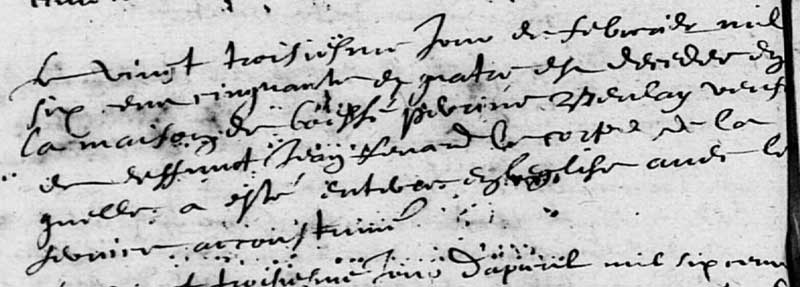 Le vingt troisiesme jour de febvrier mil
six cent cinquante et quatre est decedee en
la maison de Perrine vefve
de deffunct Jean Renard le corps de la
quelle a esté enterre en leglise avec le
service accoustumé
troisiesme jour dapvril mil six cent